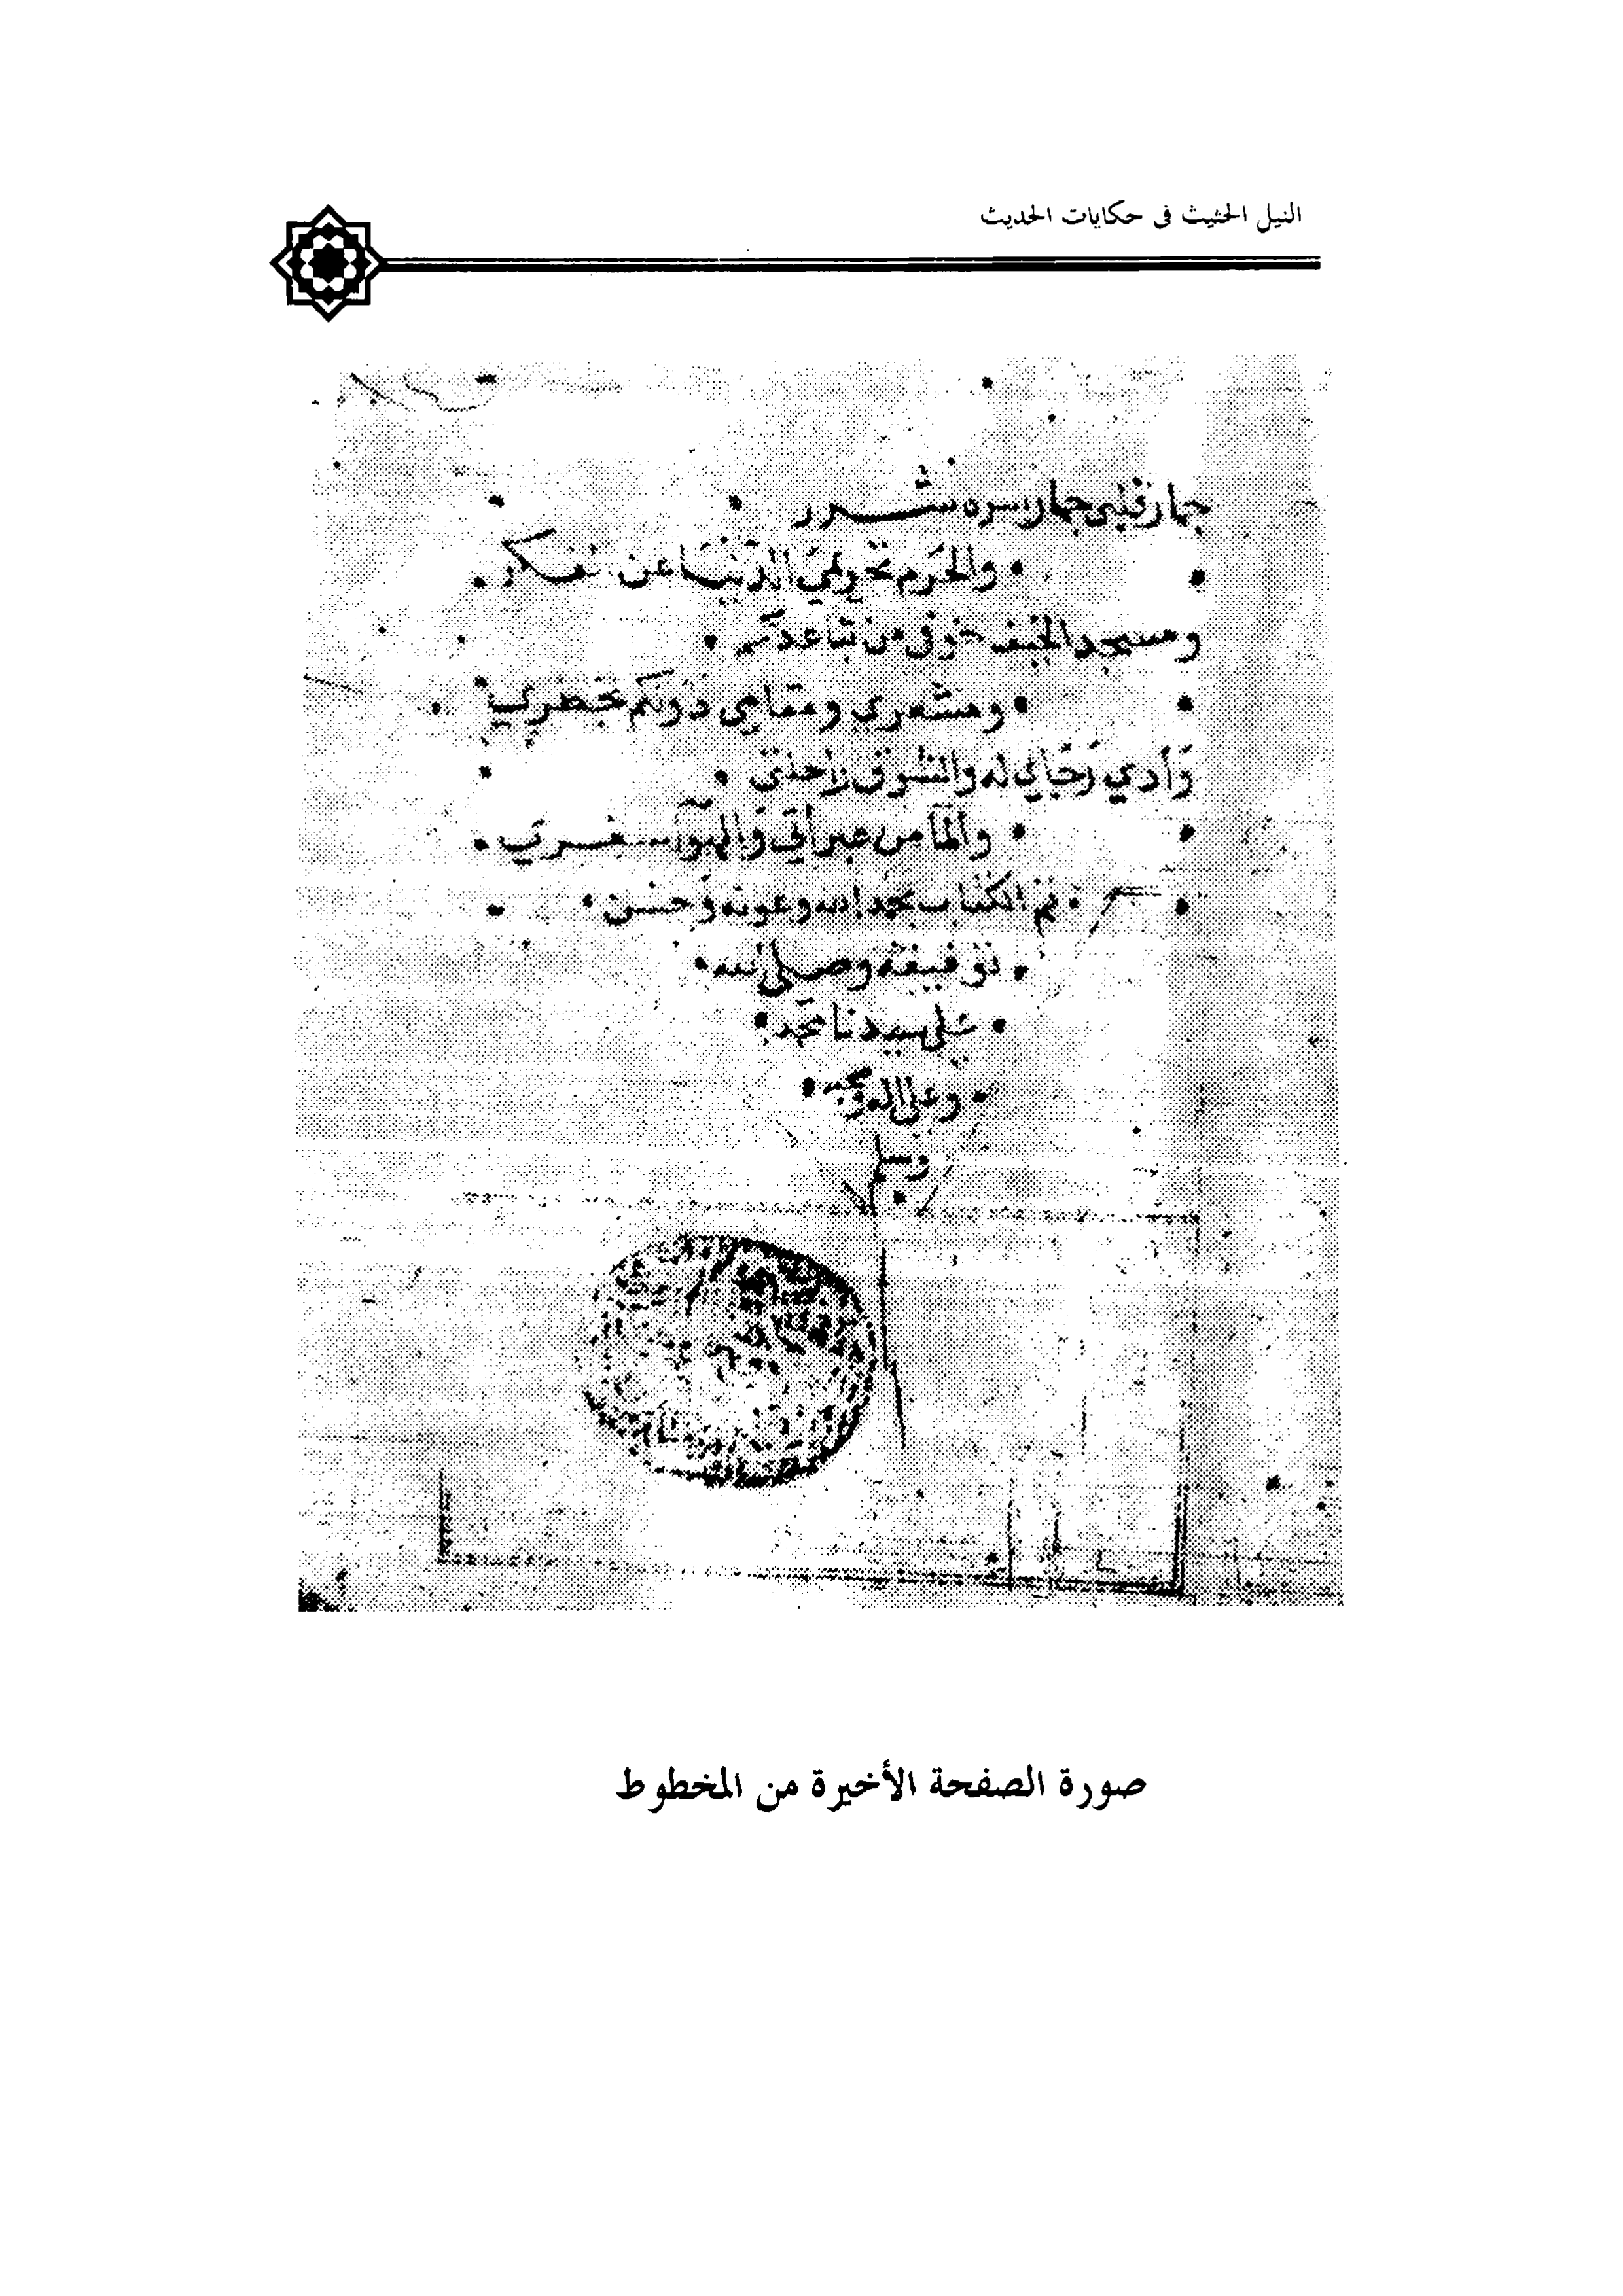 النيل الحثيث فى حكايات الحديث
جمار قلبى جمار سره شرر
والحرم تحريمي الدنيا عن فكر
ومسجد الخيف خوفى من تباعدكم
ومشعرى ومقامى دونكم خطرى
زادي رجائي له والشوق راحلتى
والما من عبراتى والهوا سفرى
تم الكتاب بحمد الله وعونه وحسن
توفيقه وصلى الله
على سيدنا محمد
وعلى اله وصحبه
وسلم
صورة الصفحة الأخيرة من المخطوط